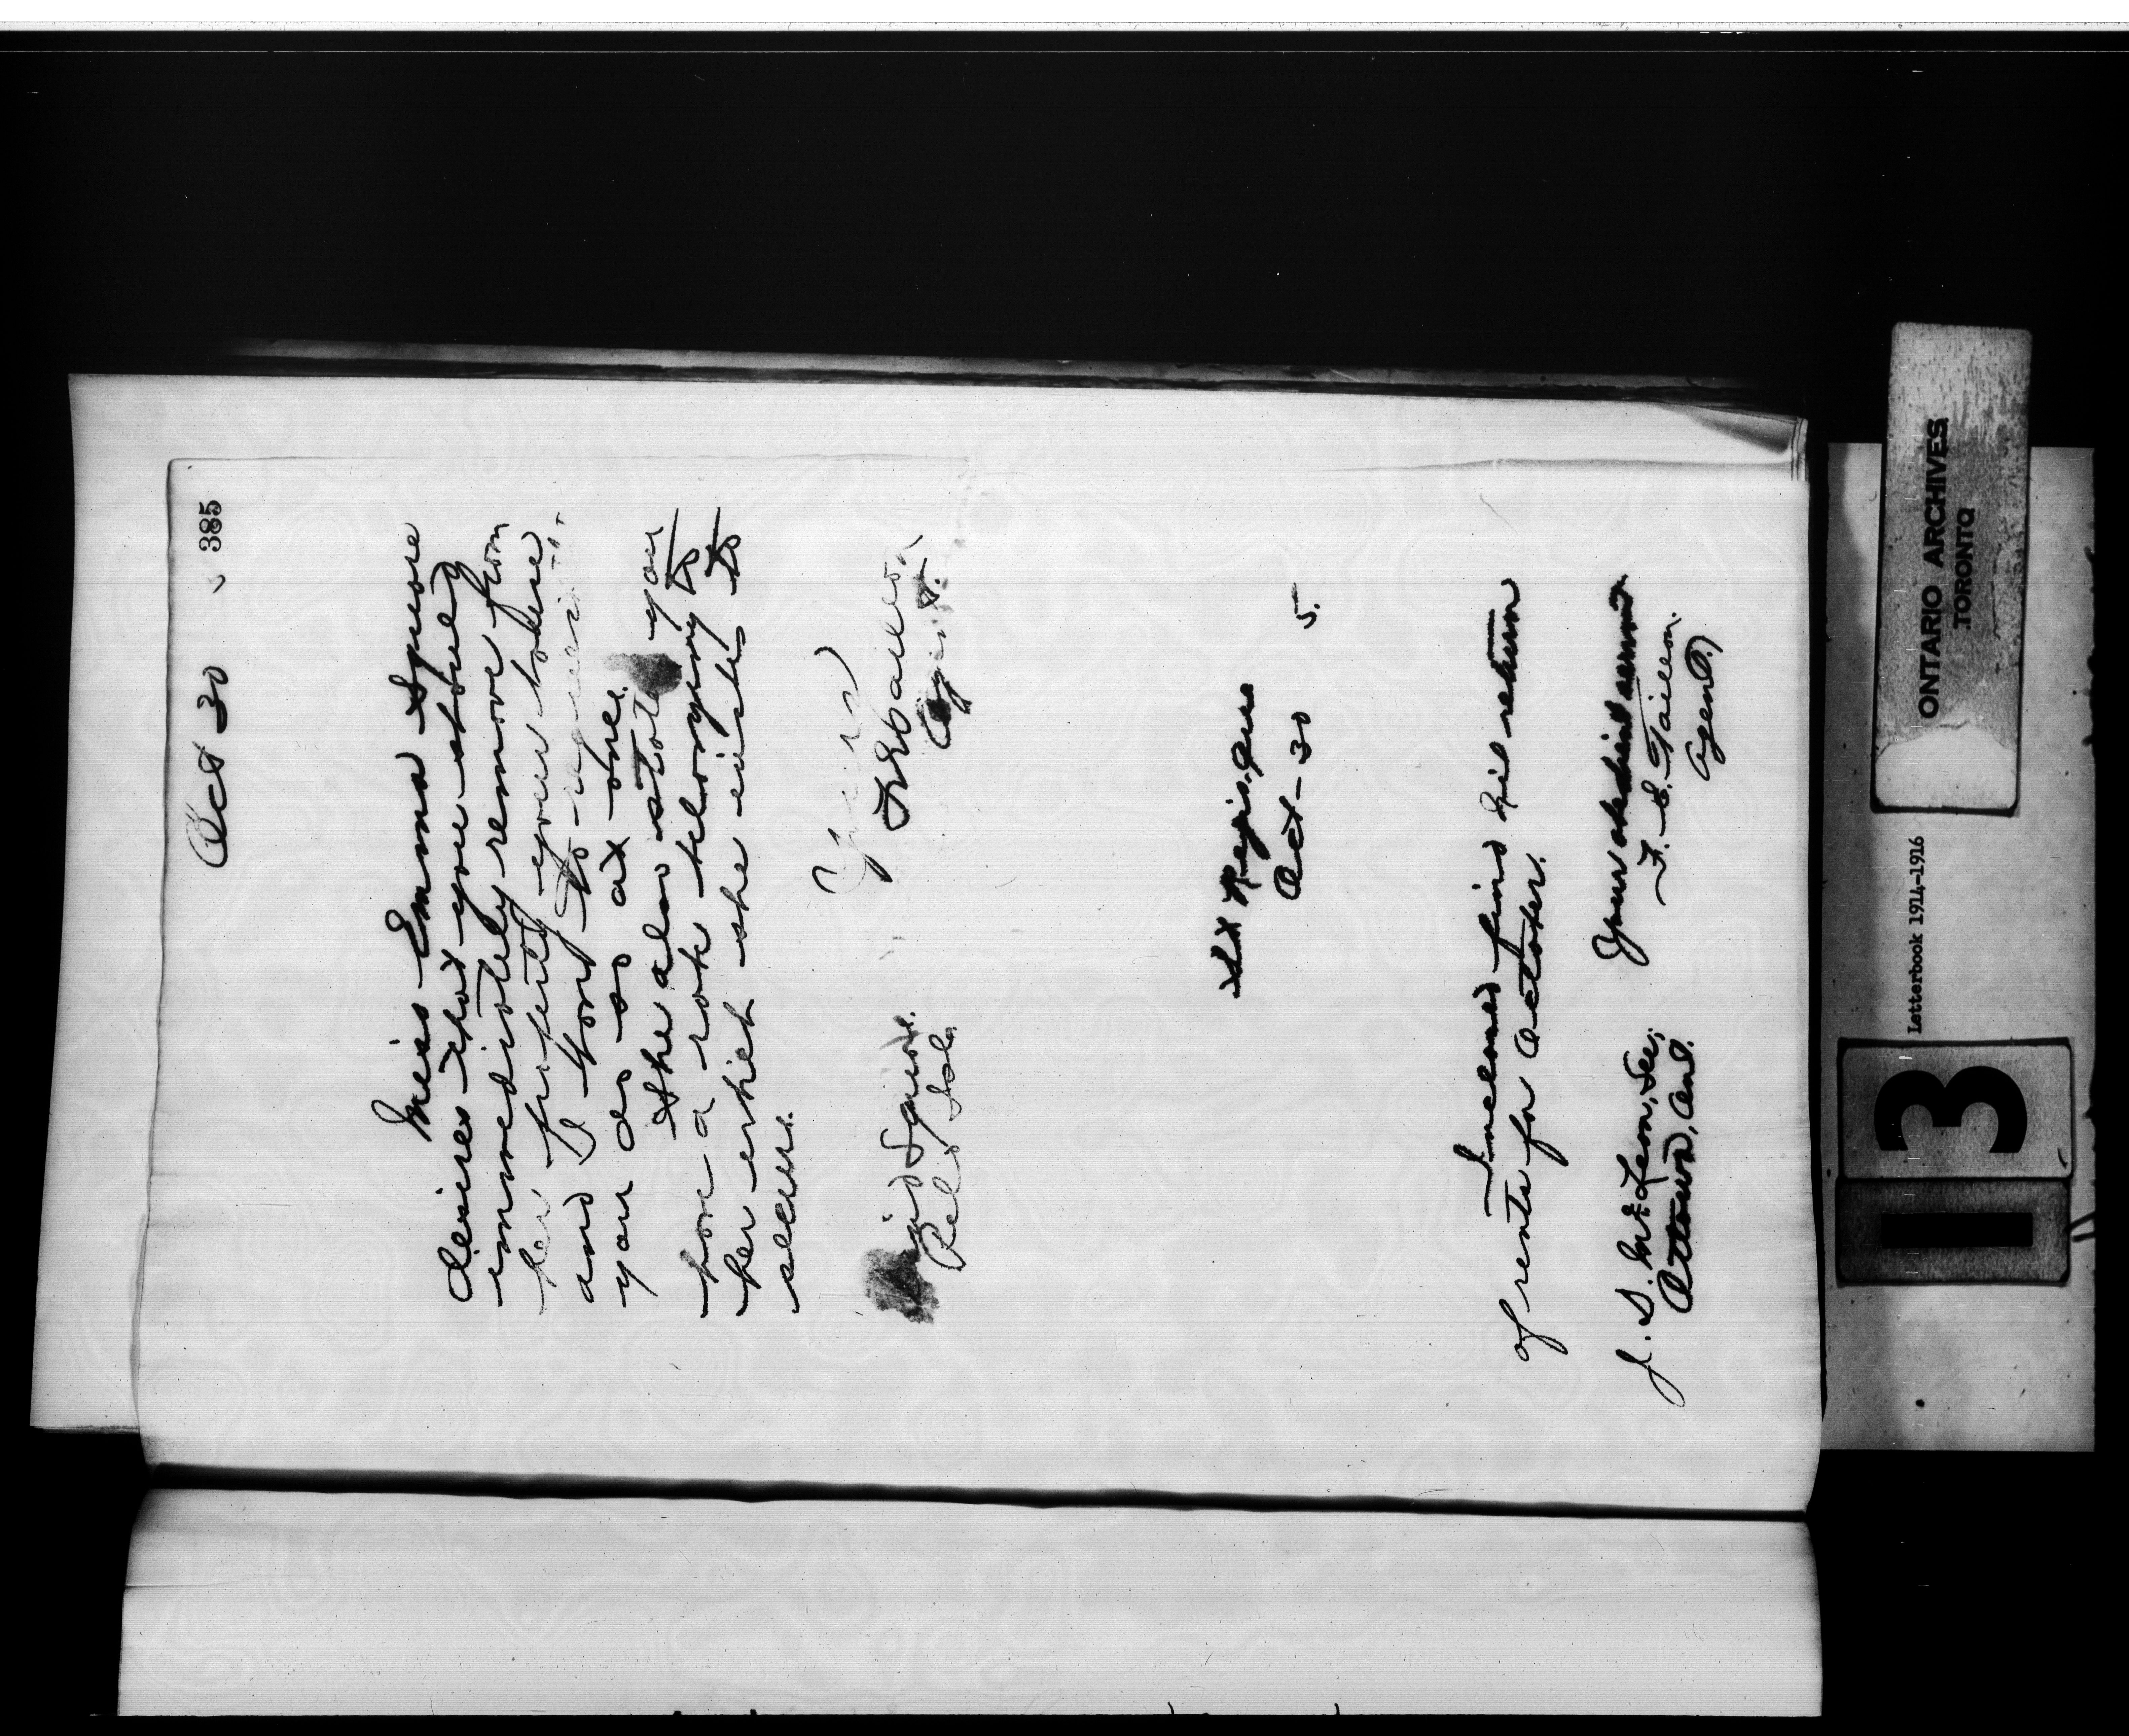 385
Oct 30
Miss Emma Squore
desires that you should
immediately remove from
her property your house,
and I want to request
you do so at one.
She also state you
have a sash belonging to
her which she wishes to
secure.
Yours
F E Taillon,
Agent.
Squore.
St Regis, Que
Oct - 30 5.
Inclosed find nil return
of rents for October.
Your obedient servant
F. E. Taillon.
Agent.)
J. D. McLean, Sec;
Ottawa, Ont.
ONTARIO ARCHIVES
TORONTO
Letterbook 1914-1916
13